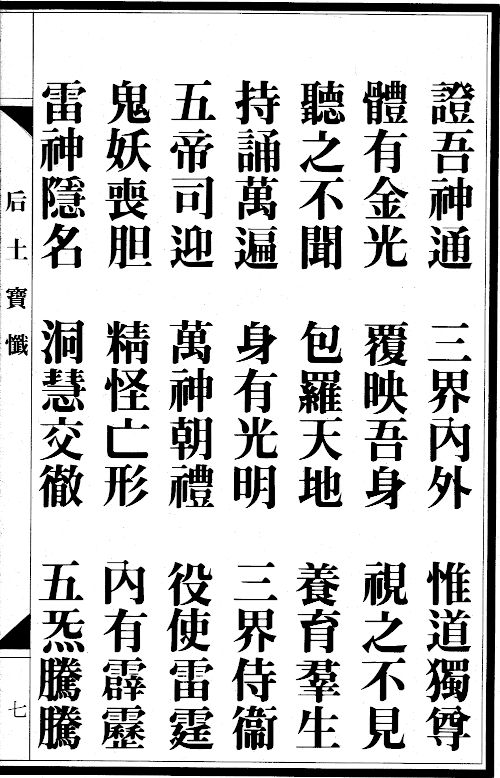 證吾神通　三界內外　惟道獨尊
體有金光　覆映吾身　視之不見
聽之不聞　包羅天地　養育羣生
持誦萬遍　身有光明　三界侍衞
五帝司迎　萬神朝禮　役使雷霆
鬼妖喪胆　精怪亡形　內有霹靂
雷神隱名　洞慧交徹　五炁騰騰
后土寶懺
七